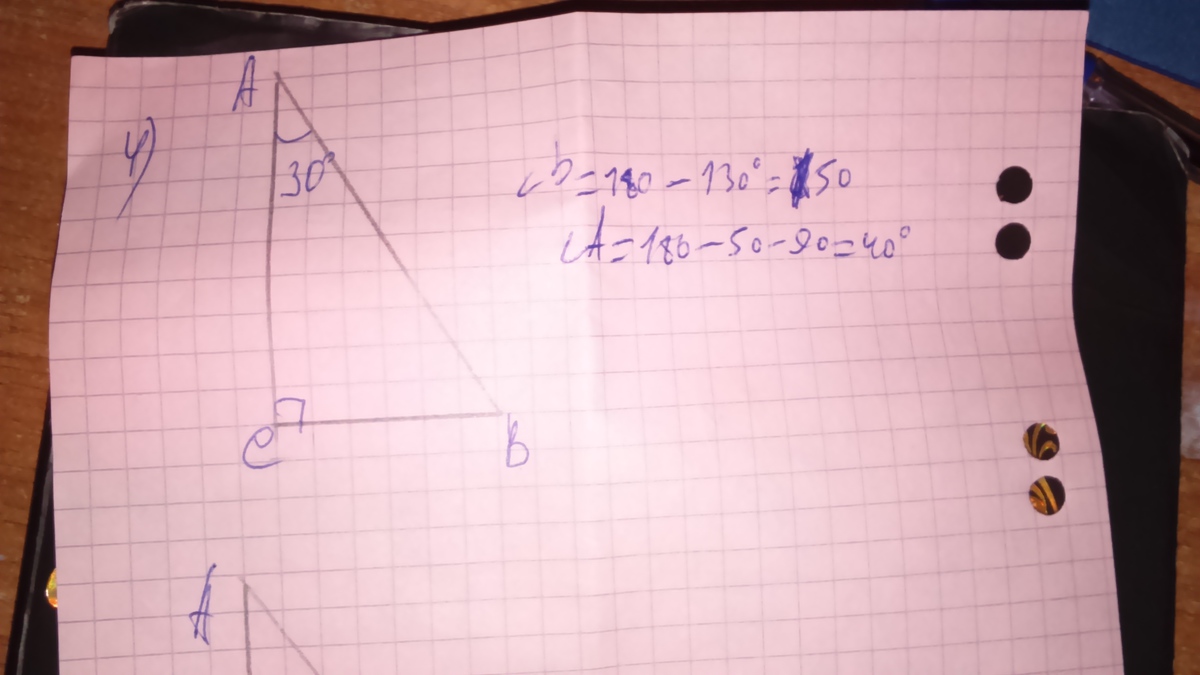 A
4)
30°
∠b=180-130°=50
∠A=180-50-90=40°
C
B
A